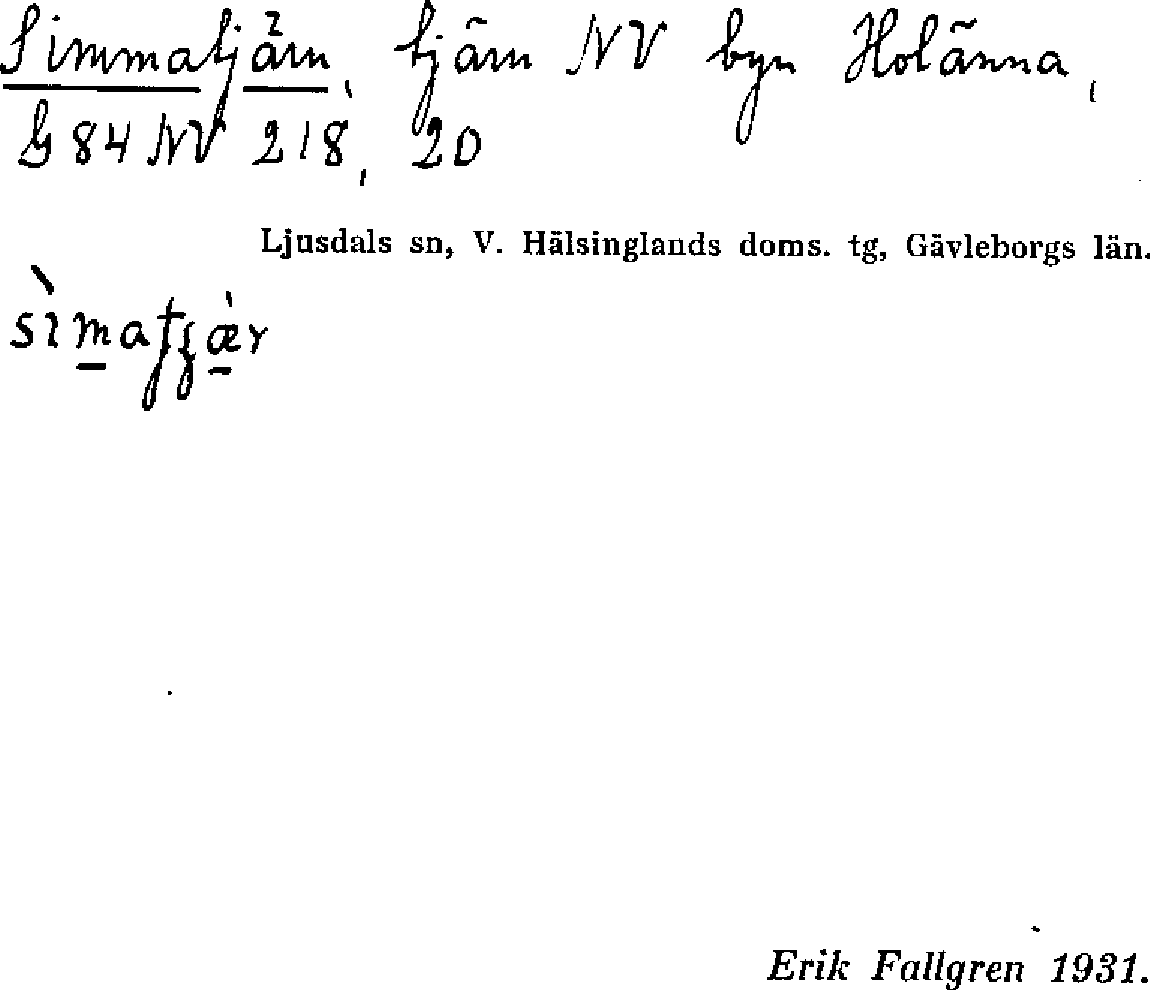 Simmatjärn, tjärn NV byn Holänna,
G 84 NV 218, 20
Ljusdals sn, V. Hälsinglands doms. tg, Gävleborgs län.
Erik Fallgren 1931.